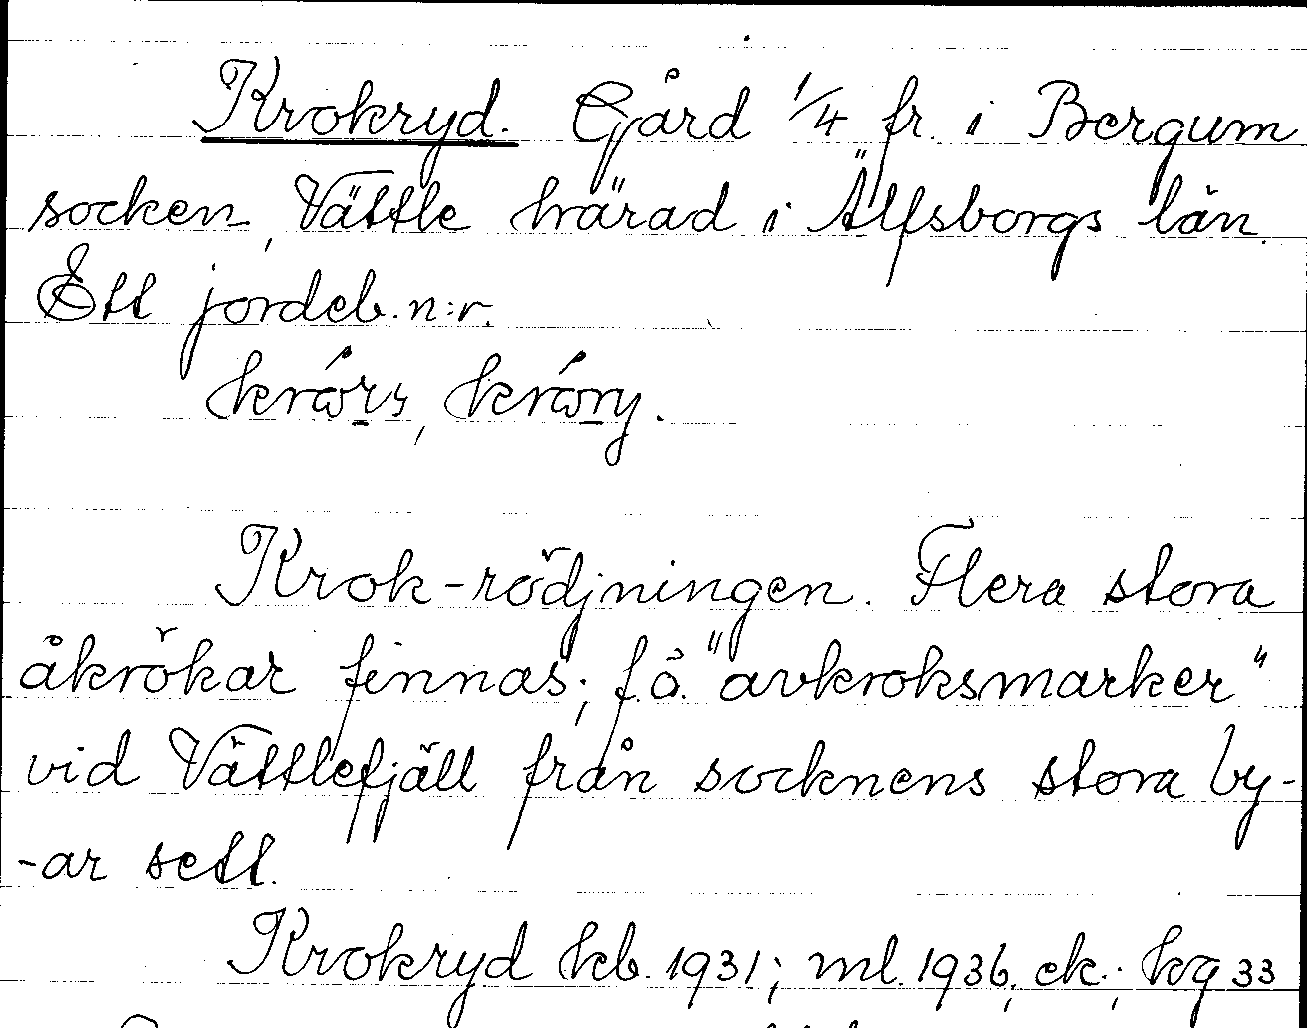 Krokryd. Gård 1/4 fr. i Bergum
socken, Vättle härad i Älfsborgs län.
Ett jordeb. n:r.
Krok-rödjningen. Flera stora
åkrökar finnas; f.ö. "avkroksmarker"
vid Vättlefjäll från socknens stora by-
-ar sett.
Krokryd kb. 1931; ml. 1936, ek.; hg 33